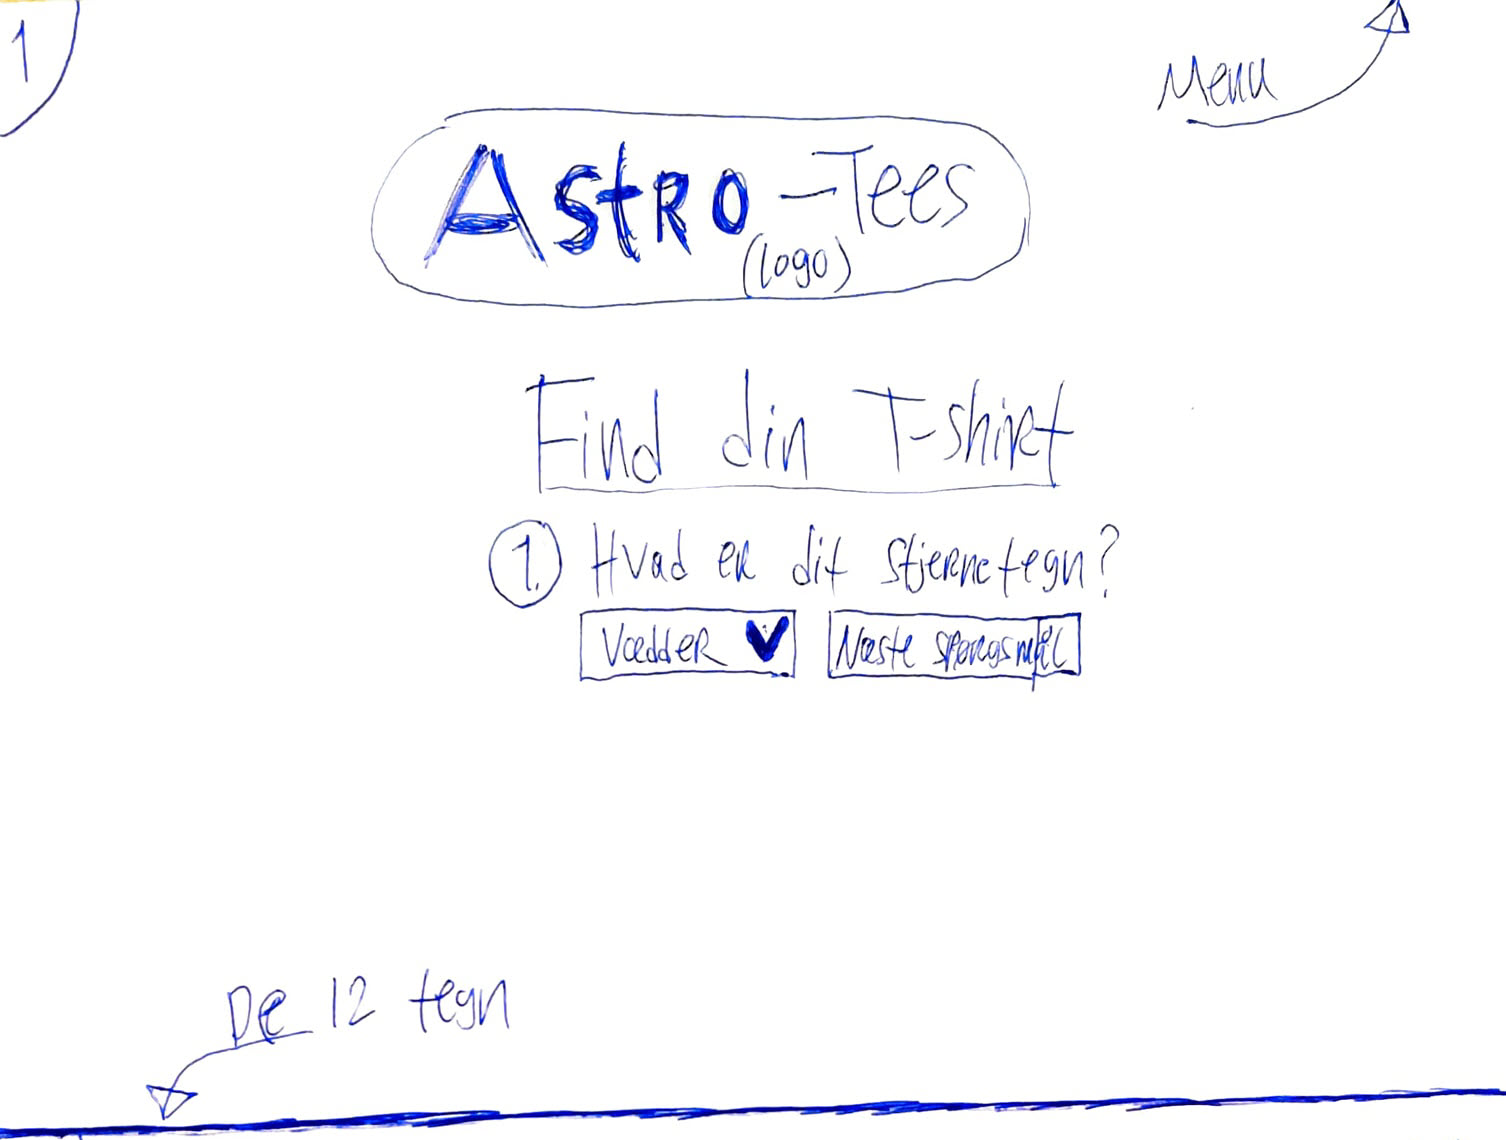 1
Menu
AstRo-Tees
(logo)
Find din T-shirt
1. Hvad er dit stjernetegn?
Vædder
Næste spørgsmål
De 12 tegn